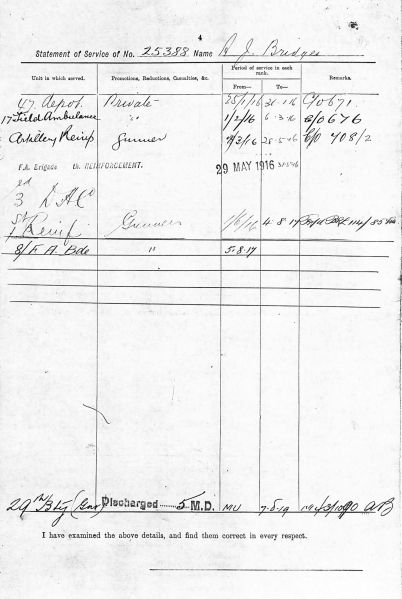 4
Statement of Service of No. 25388 Name A J. Bridges
Unit in which served. Promotions, Reductions, Casualties, &c. Period of service in each rank. Remarks.
From— To—
47 Depot. Private 25/1/16 31-1-16 C/o 671.
17 Field Ambulance " 1/2/16 6-3-16 C/o 676
Artillery Reinf Gunner 7/3/16 28-5-16 C/o 708/2
F.A. Brigade REINFORCEMENT. 29 MAY 1916 31-5-16
3rd D A C
1st Reinf. Gunner 1/6/16 4-8-17
8/F A Bde " 5-8-17
29th Bty (Gnr) Discharged 5 M.D. MU 7-5-19
I have examined the above details, and find them correct in every respect.